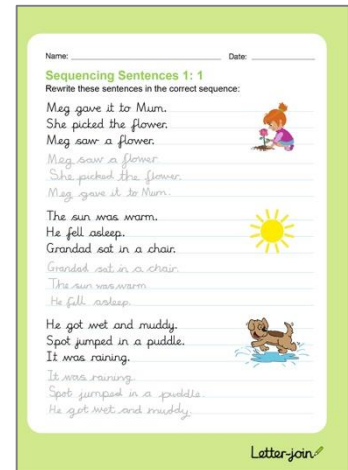 Name: Date:
Sequencing Sentences 1: 1
Rewrite these sentences in the correct sequence:
Meg gave it to Mum.
She picked the flower.
Meg saw a flower.
Meg saw a flower.
She picked the flower.
Meg gave it to Mum.
The sun was warm.
He fell asleep.
Grandad sat in a chair.
Grandad sat in a chair.
The sun was warm.
He fell asleep.
He got wet and muddy.
Spot jumped in a puddle.
It was raining.
It was raining.
Spot jumped in a puddle.
He got wet and muddy.
Letter-join